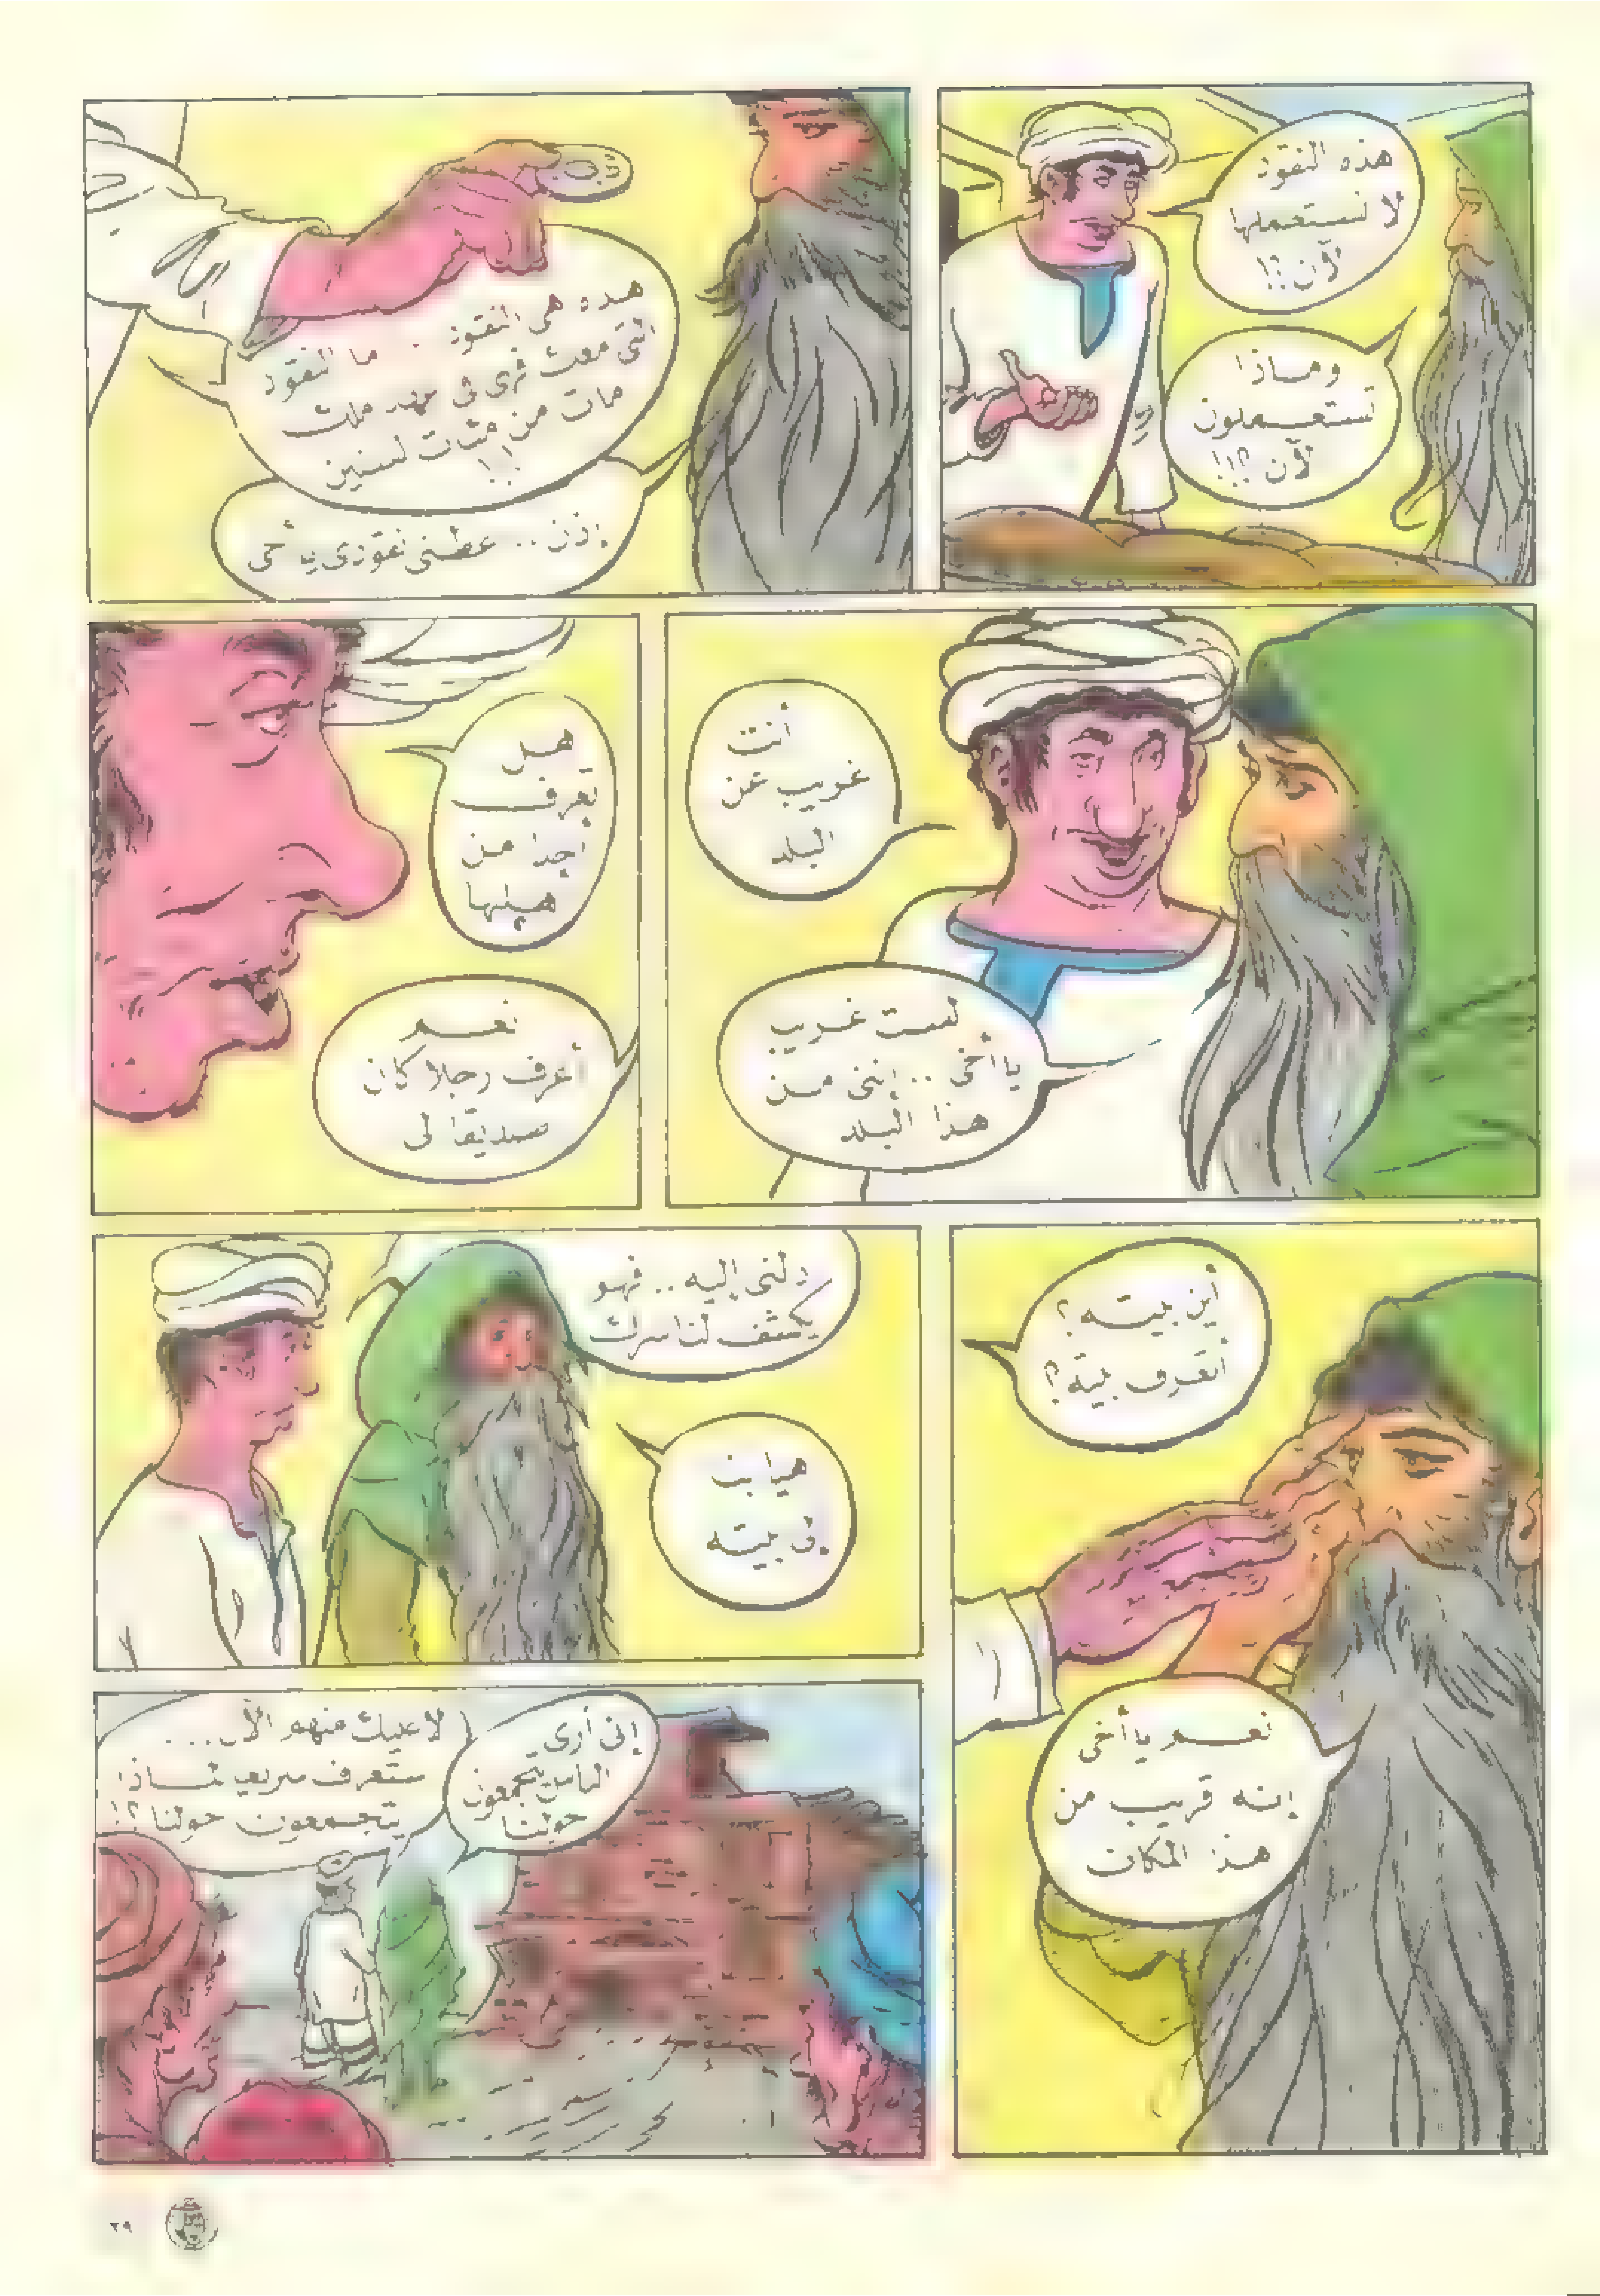 هذه النقود
لا نستعملها
الآن؟!
وماذا
تستعملون
الآن؟!!
هذه هى النقود .. ما النقود
التى معك فهى فى عهد ملك
مات من مئات السنين
!!
إذن.. عطنى نقودى يا أخى
أنت
غريب عن
البلد
لست غريب
يا أخى .. إننى من
هذا البلد
هل
تعرف
أحدا من
أهلها
نعم
أعرف رجلا كان
صديقا لى
أين بيته؟
أتعرف بيته؟
نعم يا أخى
إنه قريب من
هذا المكان
دلنى إليه.. فهو
يكشف لنا سرك
هيا بنا
إلى بيته
إنى أرى
الناس يتجمعون
حولنا
لا عليك منهم الآن...
ستعرف سريعا لماذا
يتجمعون حولنا؟!
٢٩